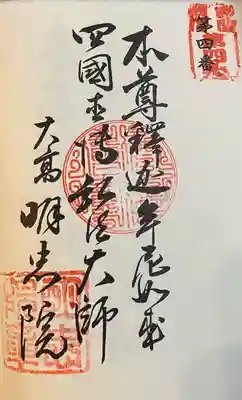 第四番
本尊釋迦牟尼如來
四國直傳弘法大師
大高 明忠院